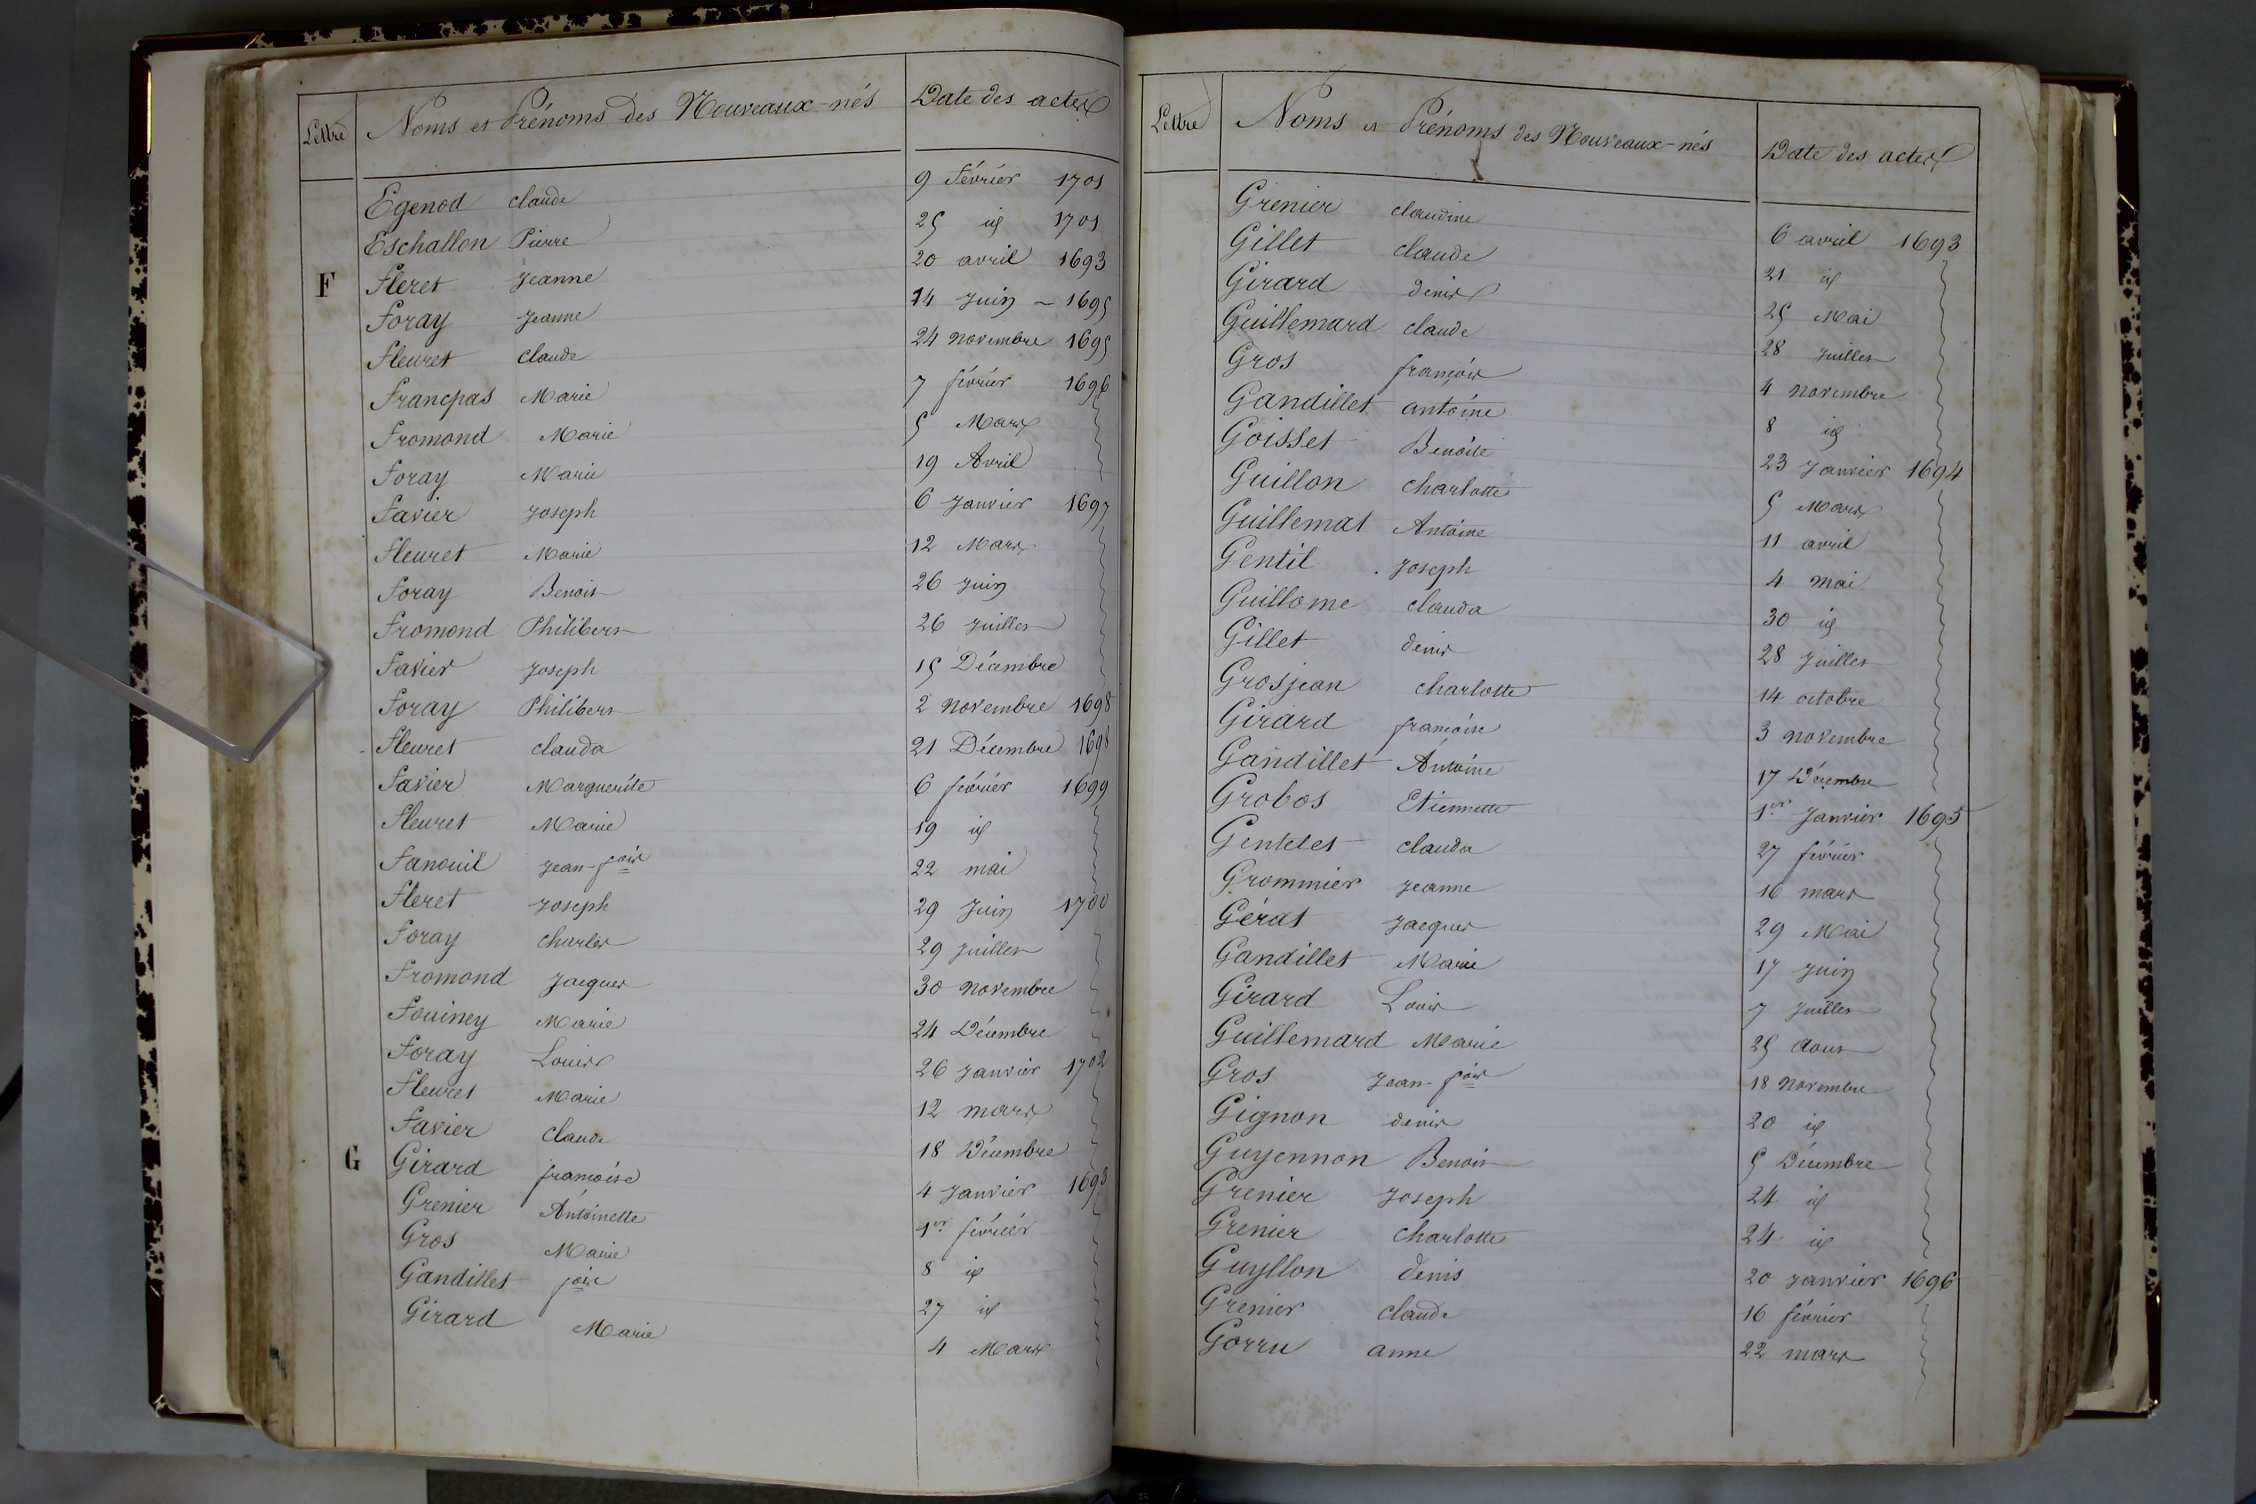 Lettre Noms et Prénoms des Nouveaux-nés Date des actes
Egenod Claude 9 février 1701
Eschallon Pierre 25 id 1701
F Fleret Jeanne 20 avril 1693
Foray Jeanne 14 Juin - 1695
Fleuret Claude 24 Novembre 1695
Francpas Marie 7 février 1696
Fromond Marie 5 Mars
Foray Marie 19 Avril
Favier Joseph 6 Janvier 1697
Fleuret Marie 12 Mars
Foray Benoit 26 Juin
Fromond Philibert 26 Juillet
Favier Joseph 15 Décembre
Foray Philibert 2 Novembre 1698
Fleuret Clauda 21 Décembre 1698
Favier Marguerite 6 février 1699
Fleuret Marie 19 id
Fanouil Jean-fois 22 mai
Fleret Joseph 29 Juin 1700
Foray Charles 29 Juillet
Fromond Jacques 30 Novembre
Fouiney Marie 24 Décembre
Foray Louis 26 Janvier 1702
Fleuret Marie 12 mars
Favier Claude 18 Décembre
G Girard françoise 4 Janvier 1693
Grenier Antoinette 1er février
Gros Marie 8 id
Gandillet fois 27 id
Girard Marie 4 Mars
Lettre Noms et Prénoms des Nouveaux-nés Date des actes
Grenier Claudine 6 avril 1693
Gillet Claude 21 id
Girard denis 25 Mai
Guillemard Claude 28 Juillet
Gros françois 4 Novembre
Gandillet antoine 8 id
Goisset Benoite 23 Janvier 1694
Guillon Charlotte 5 Mars
Guillemat Antoine 11 avril
Gentil Joseph 4 mai
Guillome Clauda 30 id
Gillet denis 28 Juillet
Grosjean Charlotte 14 octobre
Girard françoise 3 Novembre
Gandillet Antoine 17 Décembre
Grobos Etiennette 1er Janvier 1695
Gentetet Clauda 27 février
Grommier Jeanne 16 mars
Gérat Jacques 29 Mai
Gandillet Marie 17 Juin
Girard Louis 7 Juillet
Guillemard Marie 25 Aout
Gros Jean-fois 18 Novembre
Gignon denis 20 id
Guyennon Benoit 5 Décembre
Grenier Joseph 24 id
Grenier Charlotte 24 id
Guyllon Denis 20 Janvier 1696
Grenier Claude 16 février
Gorru anne 22 mars